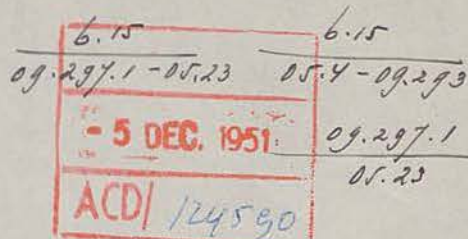 6.15 6.15
09.297.1 - 05.23 05.4 - 09.293
- 5 DEC. 1951 09.297.1
05.23
ACD/ 124590